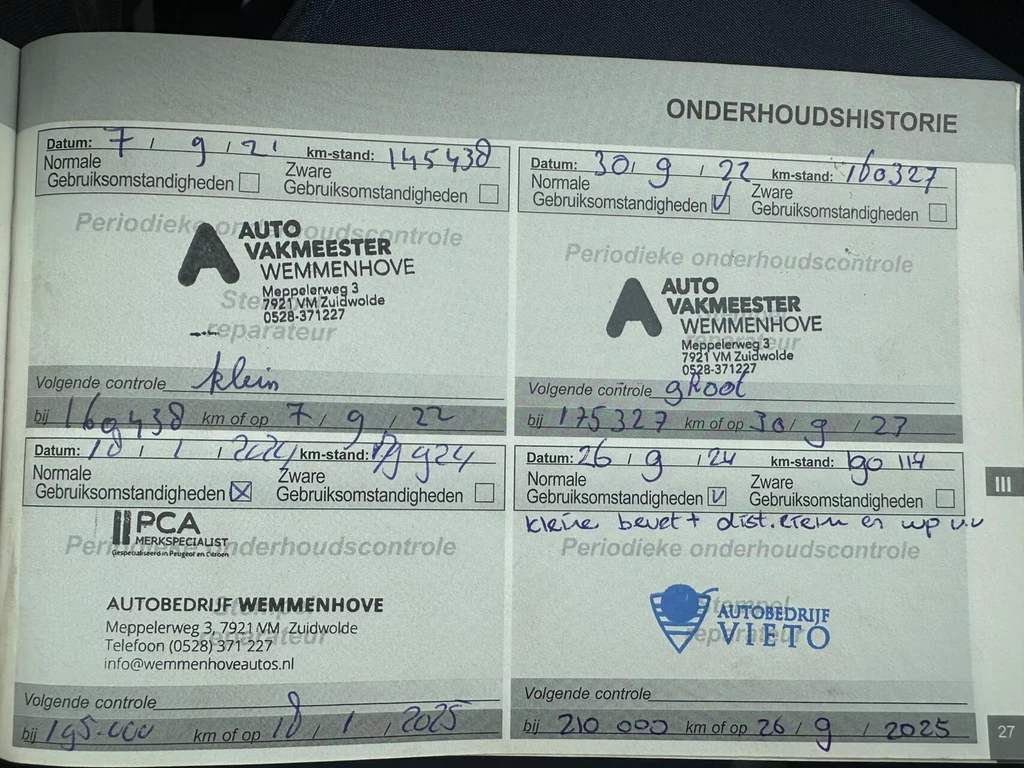 ONDERHOUDSHISTORIE
Datum: 7 / 9 / 21 km-stand: 145438
Normale Gebruiksomstandigheden
Zware Gebruiksomstandigheden
Periodieke onderhoudscontrole
AUTO
VAKMEESTER
WEMMENHOVE
Meppelerweg 3
7921 VM Zuidwolde
0528-371227
Stempel
reparateur
Volgende controle klein
bij 160438 km of op 7 / 9 / 22
Datum: 30 / 9 / 22 km-stand: 160327
Normale Gebruiksomstandigheden
Zware Gebruiksomstandigheden
Periodieke onderhoudscontrole
AUTO
VAKMEESTER
WEMMENHOVE
Meppelerweg 3
7921 VM Zuidwolde
0528-371227
reparateur
Volgende controle gRoot
bij 175327 km of op 30 / 9 / 23
Datum: 18 / 1 / 2024 km-stand:
Normale Gebruiksomstandigheden
Zware Gebruiksomstandigheden
PCA
MERKSPECIALIST
Gespecialiseerd in Peugeot en Citroën
Periodieke onderhoudscontrole
Stempel
reparateur
AUTOBEDRIJF WEMMENHOVE
Meppelerweg 3, 7921 VM Zuidwolde
Telefoon (0528) 371 227
info@wemmenhoveautos.nl
Volgende controle
bij 195.000 km of op 18 / 1 / 2025
Datum: 26 / 9 / 24 km-stand: 190 114
Normale Gebruiksomstandigheden
Zware Gebruiksomstandigheden
kleine beurt + dist.riem en wp v.v
Periodieke onderhoudscontrole
Stempel
reparateur
AUTOBEDRIJF
VIETO
Volgende controle
bij 210 000 km of op 26 / 9 / 2025
III
27